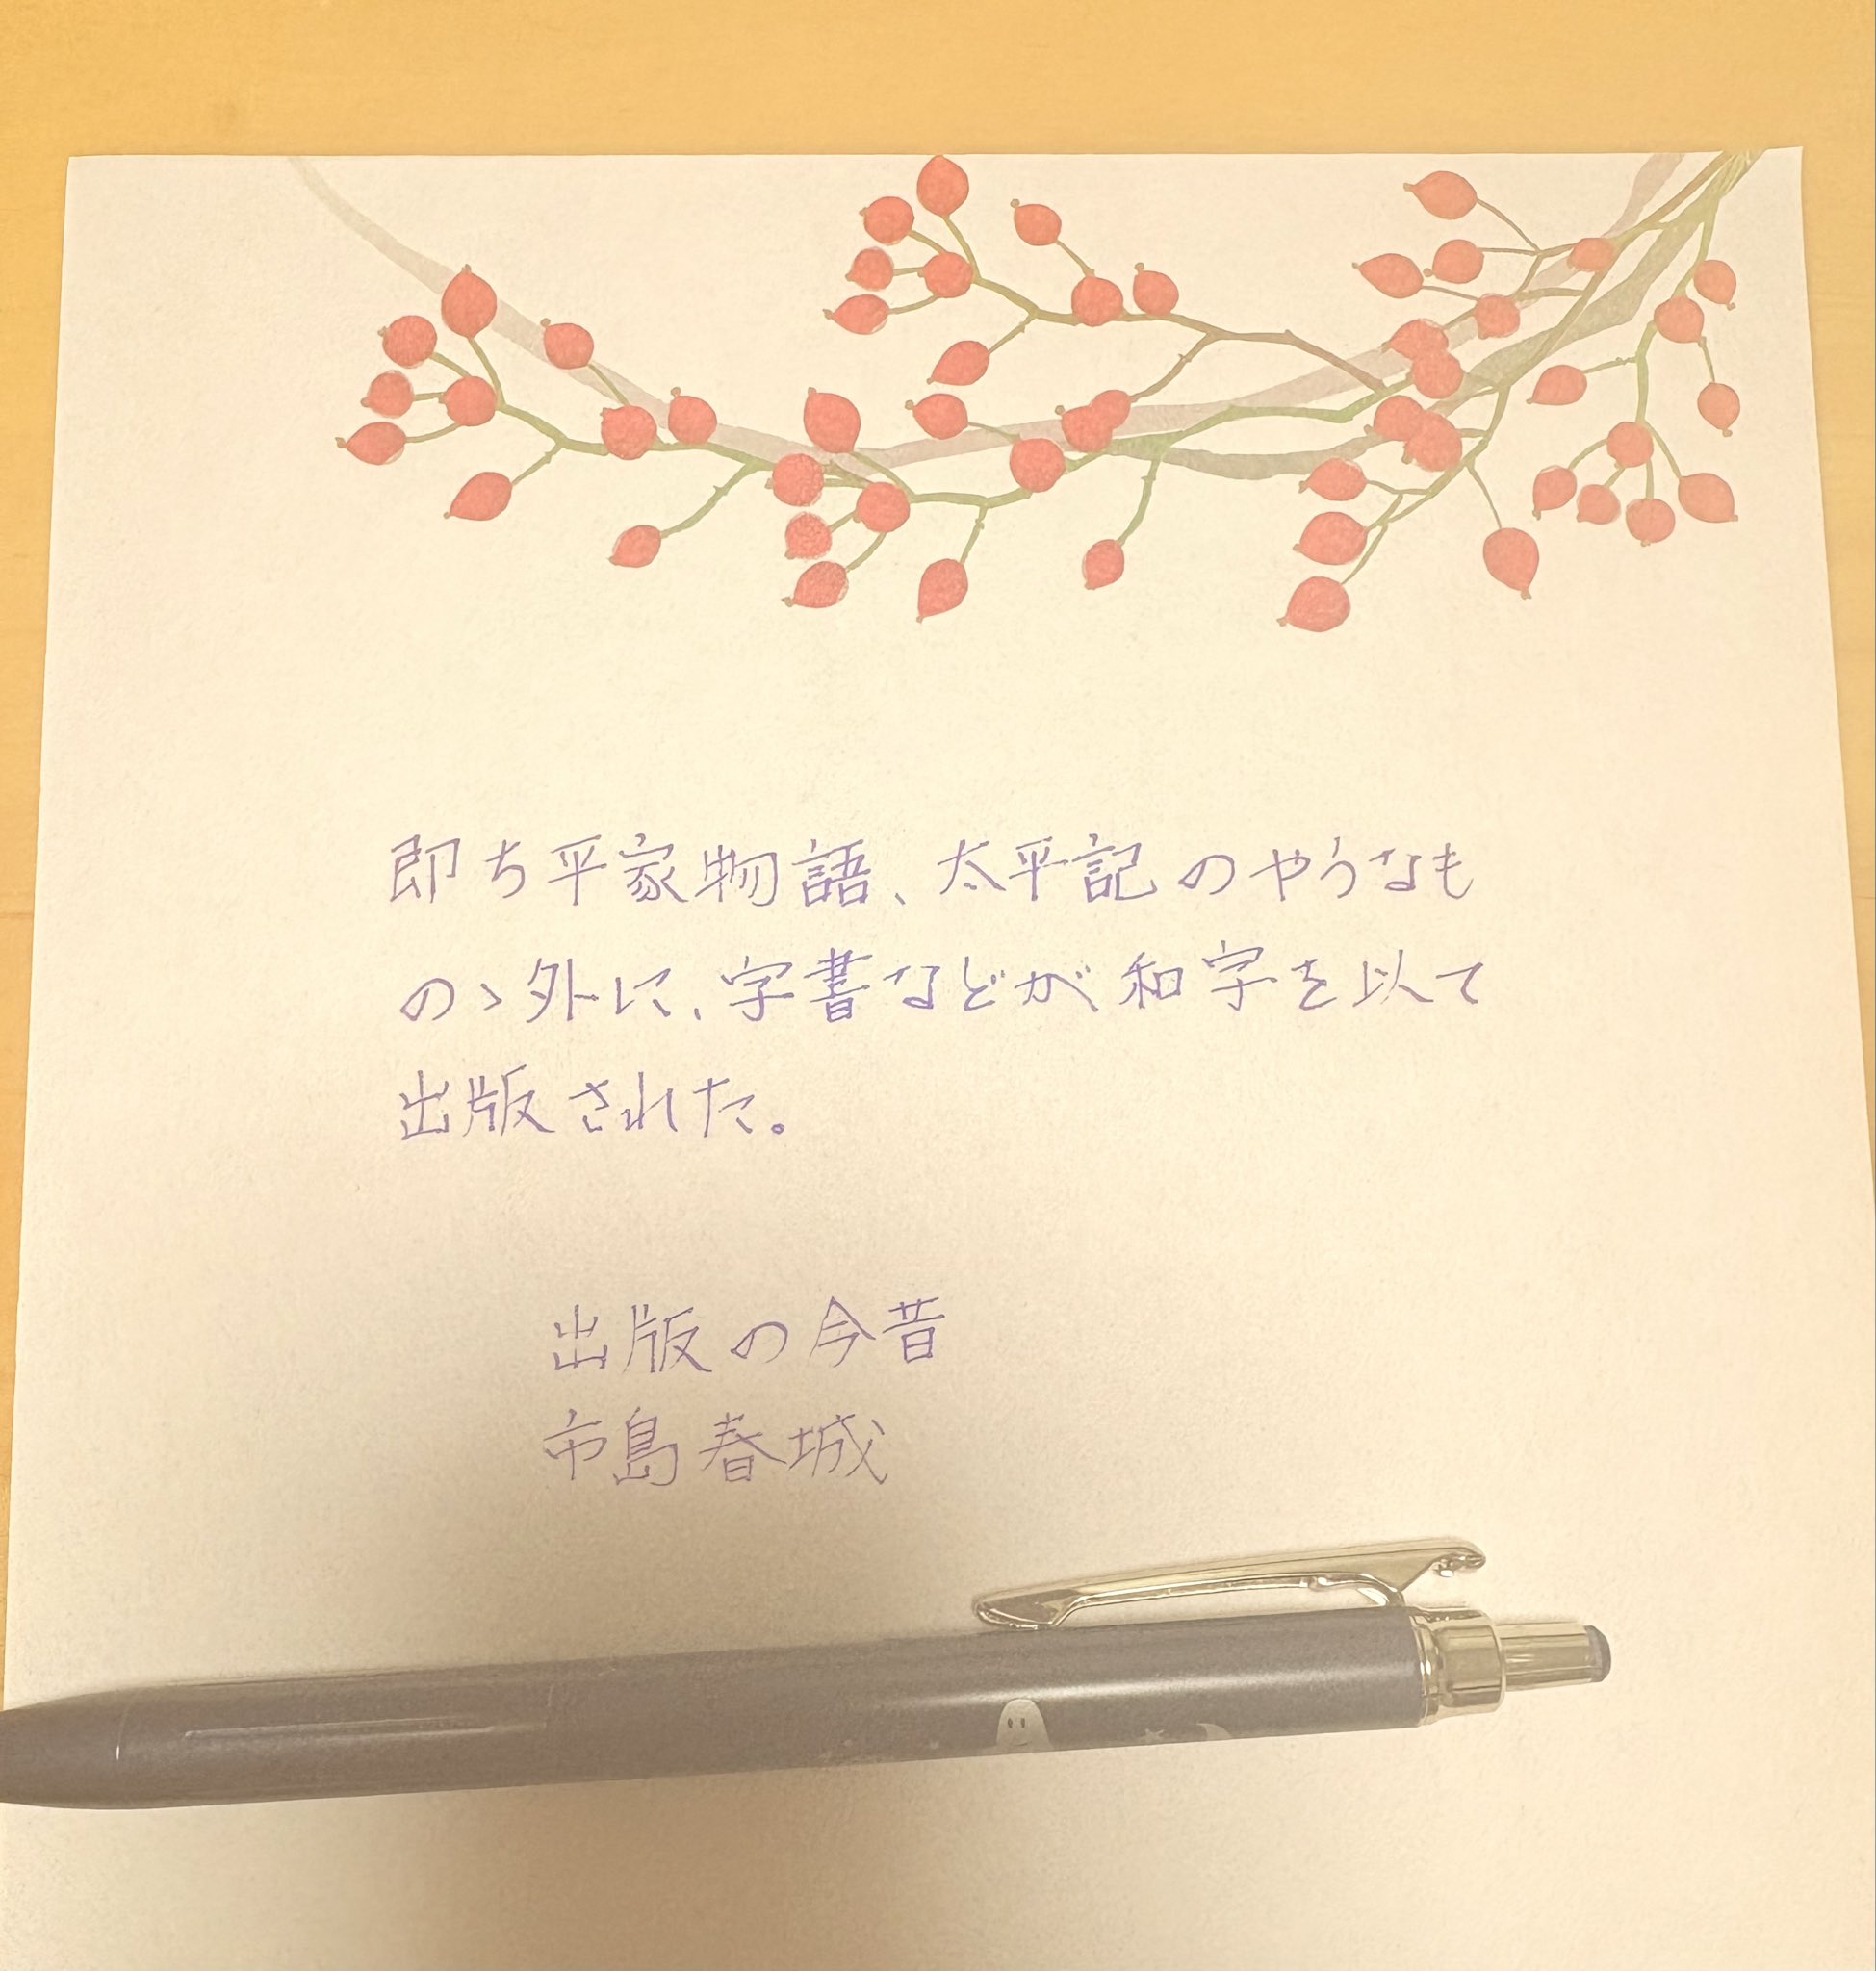 即ち平家物語、太平記のやうなも
のゝ外に、字書などが和字を以て
出版された。
出版の今昔
市島春城